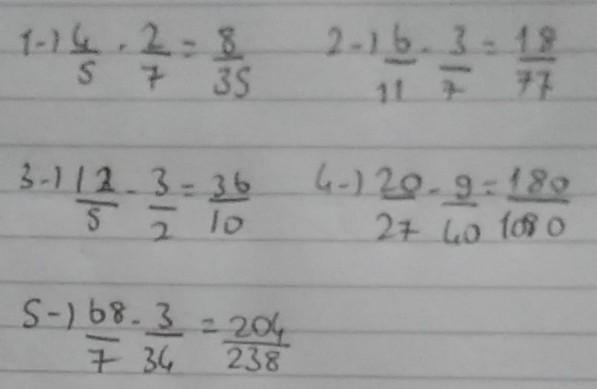 1-) 4/5 . 2/7 = 8/35 2-) 6/11 - 3/7 = 18/77
3-) 12/5 - 3/2 = 36/10 4-) 20/27 - 9/40 = 180/1080
5-) 68/7 - 3/34 = 204/238